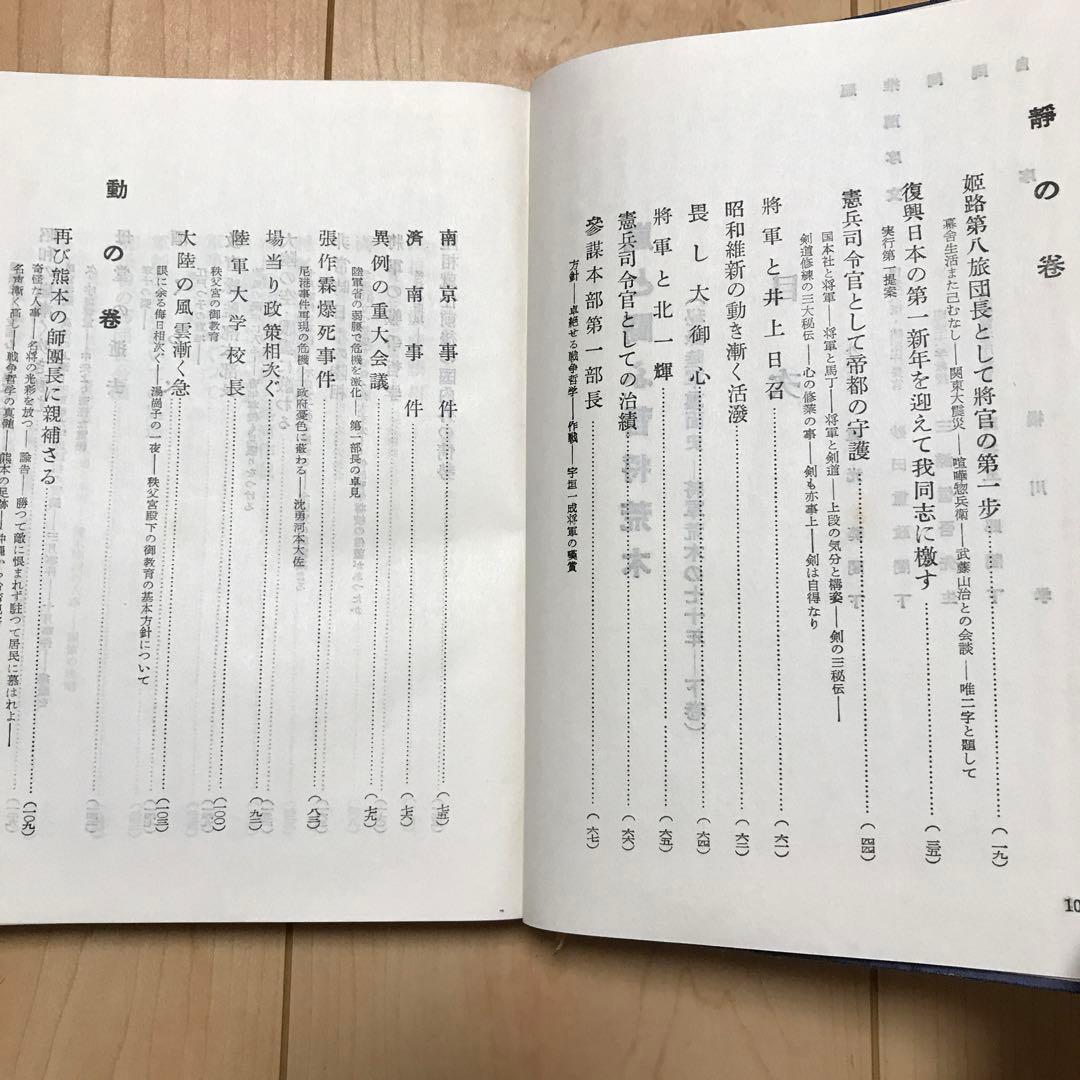 靜の巻
姫路第八旅団長として將官の第一歩……(一九)
幕舎生活また已むなし――関東大震災――喧嘩惣兵衛――武藤山治との会談――唯二字と題して
復興日本の第一新年を迎えて我同志に檄す……(三五)
実行第一提案
憲兵司令官として帝都の守護……(四四)
国本社と將軍――將軍と馬丁――將軍と剣道――上段の気分と構姿――剣の三秘伝――
剣道修練の三大秘伝――心の修業の事――剣も亦事上――剣は自得なり
將軍と井上日召……(六一)
昭和維新の動き漸く活潑……(六二)
畏し大御心……(六四)
將軍と北一輝……(六五)
憲兵司令官としての治績……(六六)
參謀本部第一部長……(六七)
方針――卓絶せる戦争哲学――作戦――宇垣一成将軍の嘆賞
10
南京事件……(七五)
済南事件……(七六)
異例の重大会議……(七九)
陸軍省の弱腰で危機を激化――第一部長の卓見
張作霖爆死事件……(八三)
尼港事件再現の危機――政府憂色に蔽わる――沈勇河本大佐
場当り政策相次ぐ……(九二)
陸軍大学校長……(一〇〇)
秩父宮の御教育
大陸の風雲漸く急……(一〇三)
眼に余る侮日相次ぐ――湯崗子の一夜――秩父宮殿下の御教育の基本方針について
動の巻
再び熊本の師團長に親補さる……(一〇九)
奇怪な人事――名将の光彩を放つ――諭告――勝つて敵に恨まれず駐つて居民に慕はれよ――
名声漸く高し――戦争哲学の真髄――熊本の足跡――